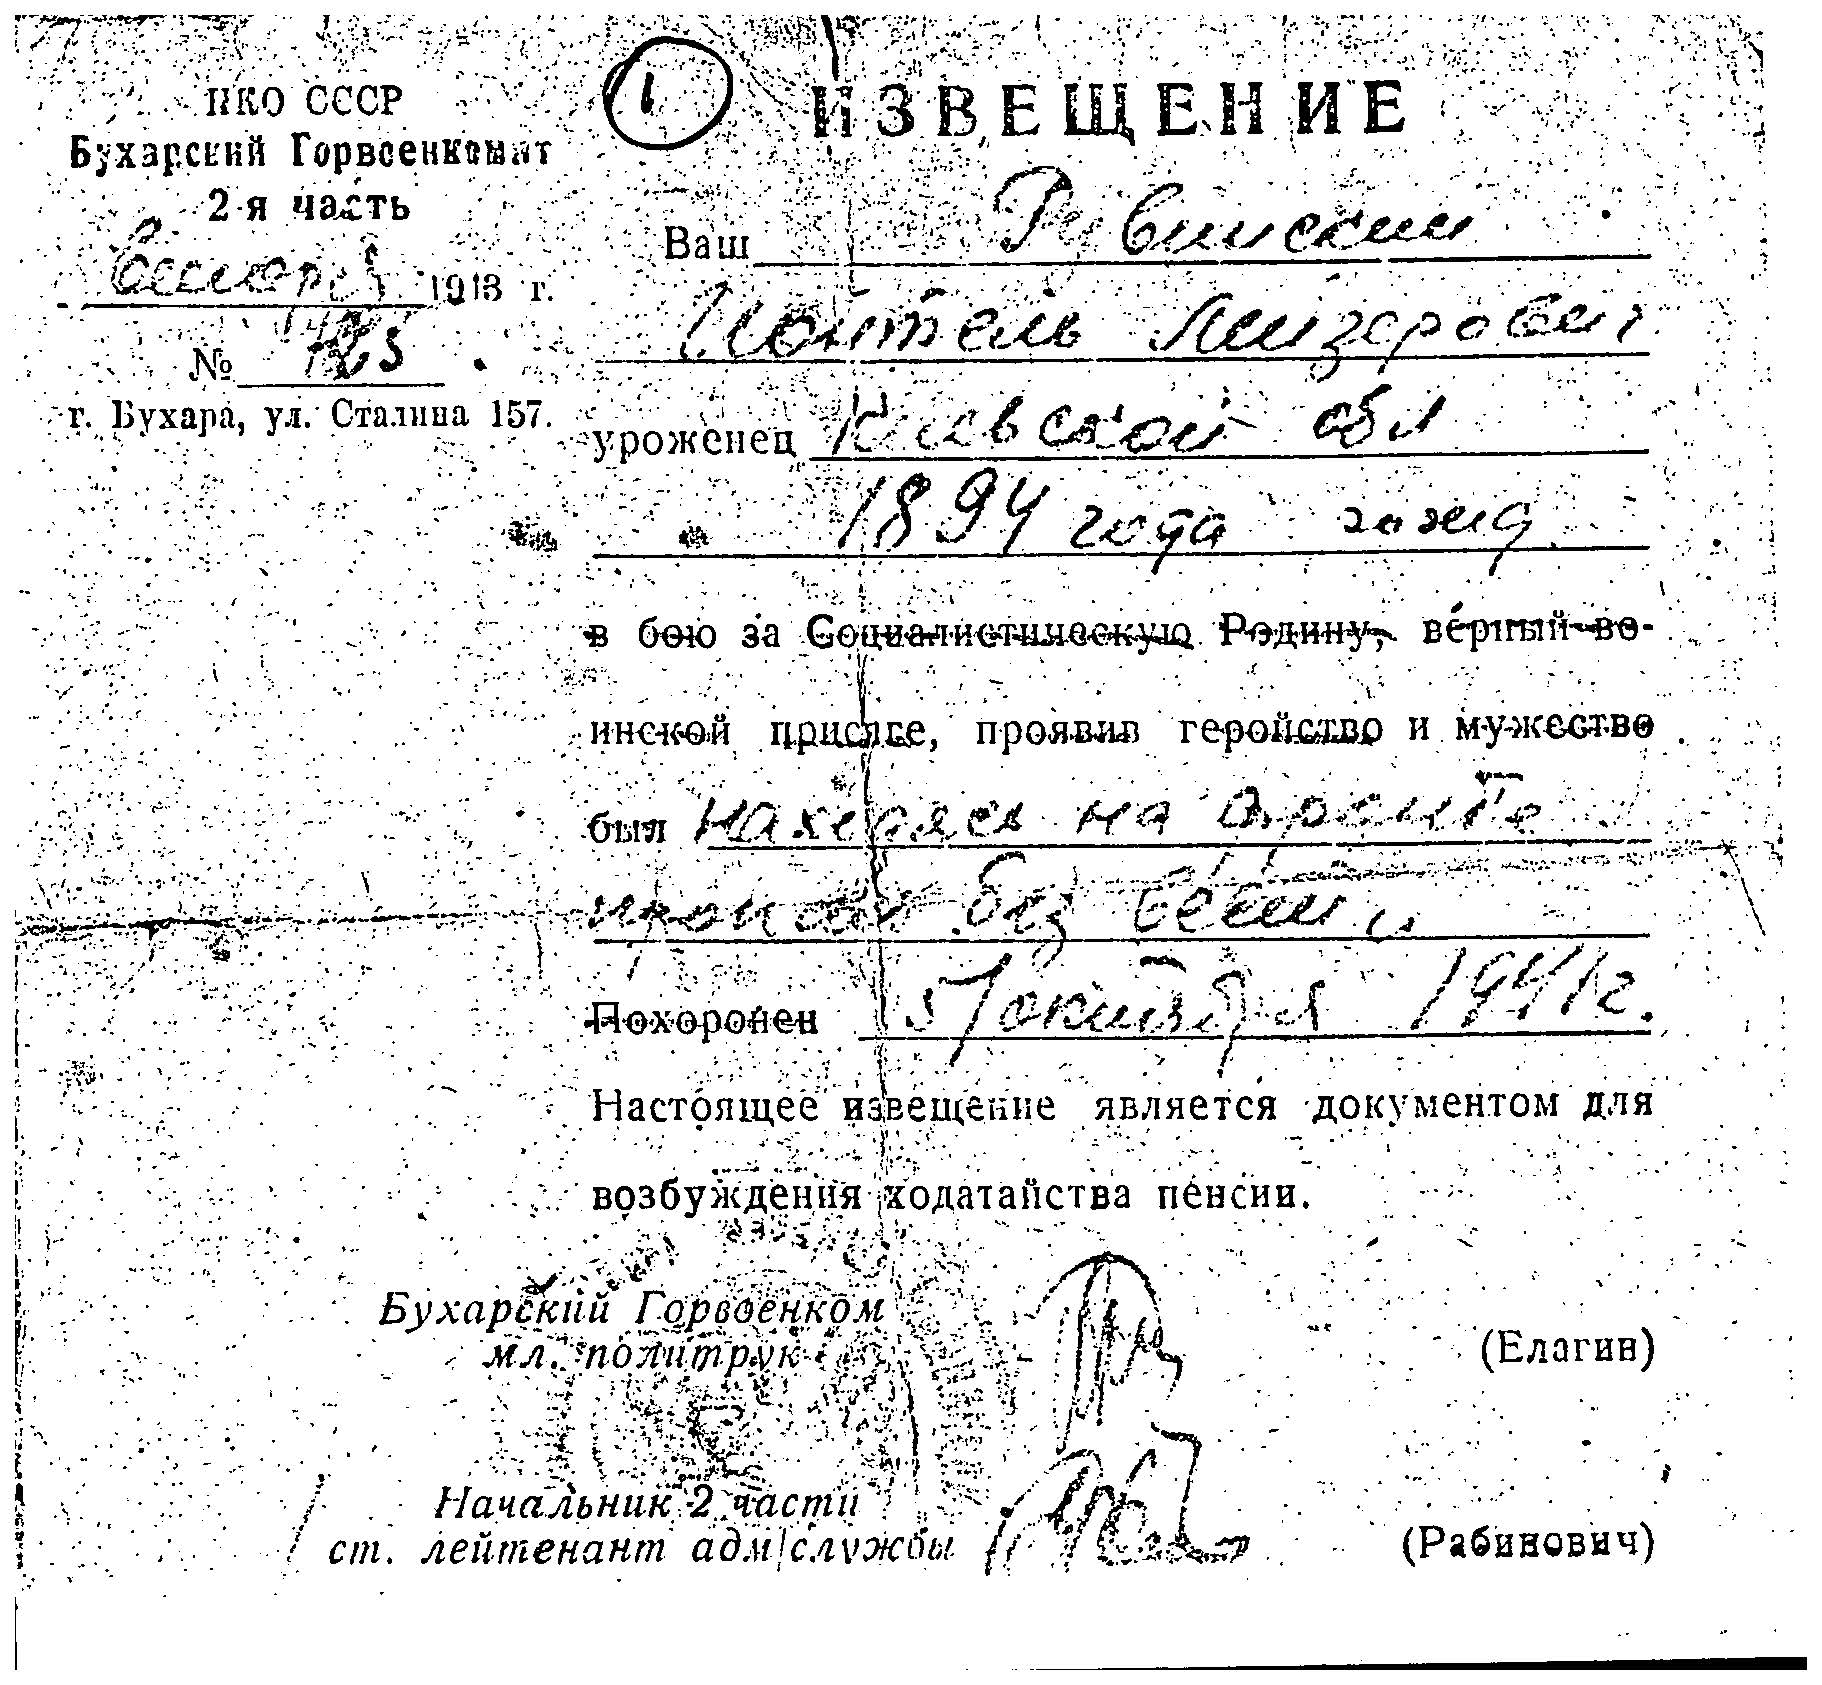 НКО СССР
Бухарский Горвоенкомат
2-я часть
1943 г.
№
г. Бухара, ул. Сталина 157.
1
ИЗВЕЩЕНИЕ
Ваш Рувинский
Лейзерович
уроженец Киевской обл
1894 года рожд
в бою за Социалистическую Родину, верный во-
инской присяге, проявив геройство и мужество
был находясь на фронте
пропал без вести
Похоронен 5/октября 1941г.
Настоящее извещение является документом для
возбуждения ходатайства пенсии.
Бухарский Горвоенком
мл. политрук (Елагин)
Начальник 2 части
ст. лейтенант адм/службы (Рабинович)